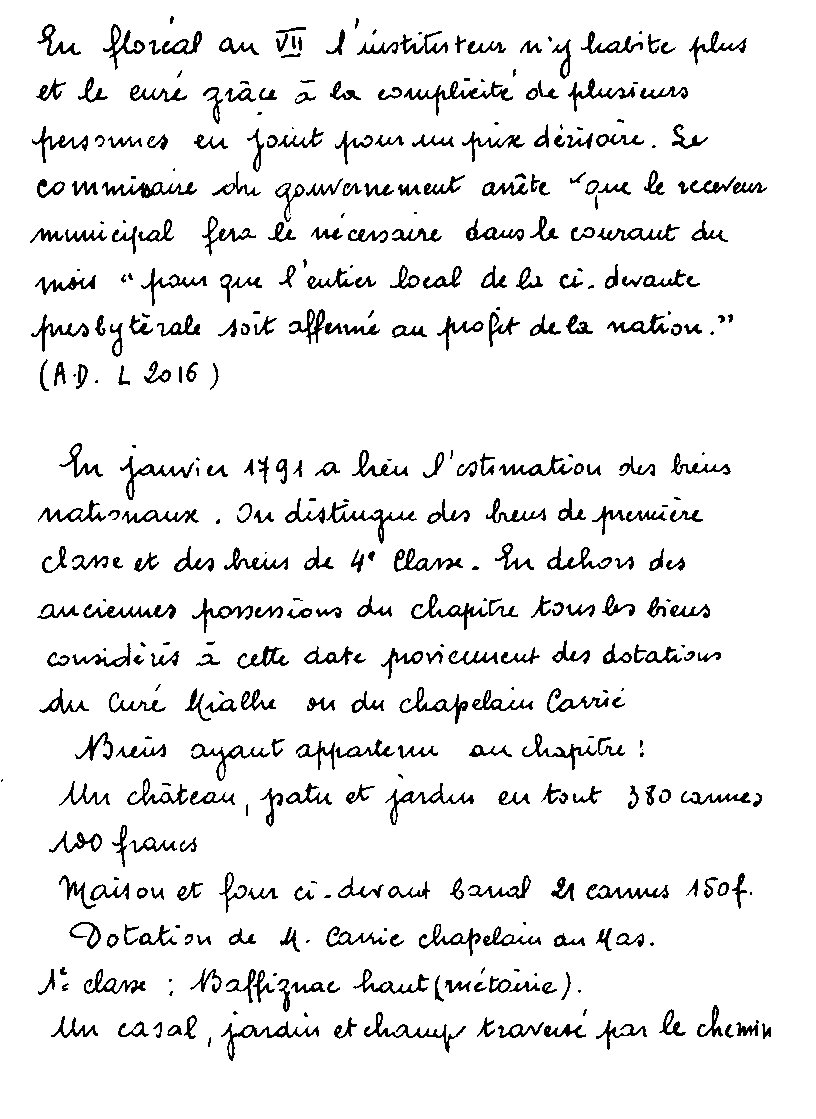 En floréal an VII l'instituteur n'y habite plus
et le curé grâce à la complicité de plusieurs
personnes en jouit pour un prix dérisoire. Le
commissaire du gouvernement arrête "que le receveur
municipal fera le nécessaire dans le courant du
mois "pour que l'entier local de la ci-devante
presbytèrale soit affermé au profit de la nation."
(A.D. L 2016)

En janvier 1791 a lieu l'estimation des biens
nationaux. On distingue des biens de première
classe et des biens de 4e Classe. En dehors des
anciennes possessions du chapitre tous les biens
considérés à cette date proviennent des dotations
du Curé Mialhe ou du chapelain Carrié
Biens ayant appartenu au chapitre :
Un château, patu et jardin en tout 380 cannes
100 francs
Maison et four ci-devant banal 21 cannes 150f.
Dotation de M. Carrie chapelain au Mas.
1e classe : Baffignac haut (métairie).
Un casal, jardin et champ traversé par le chemin